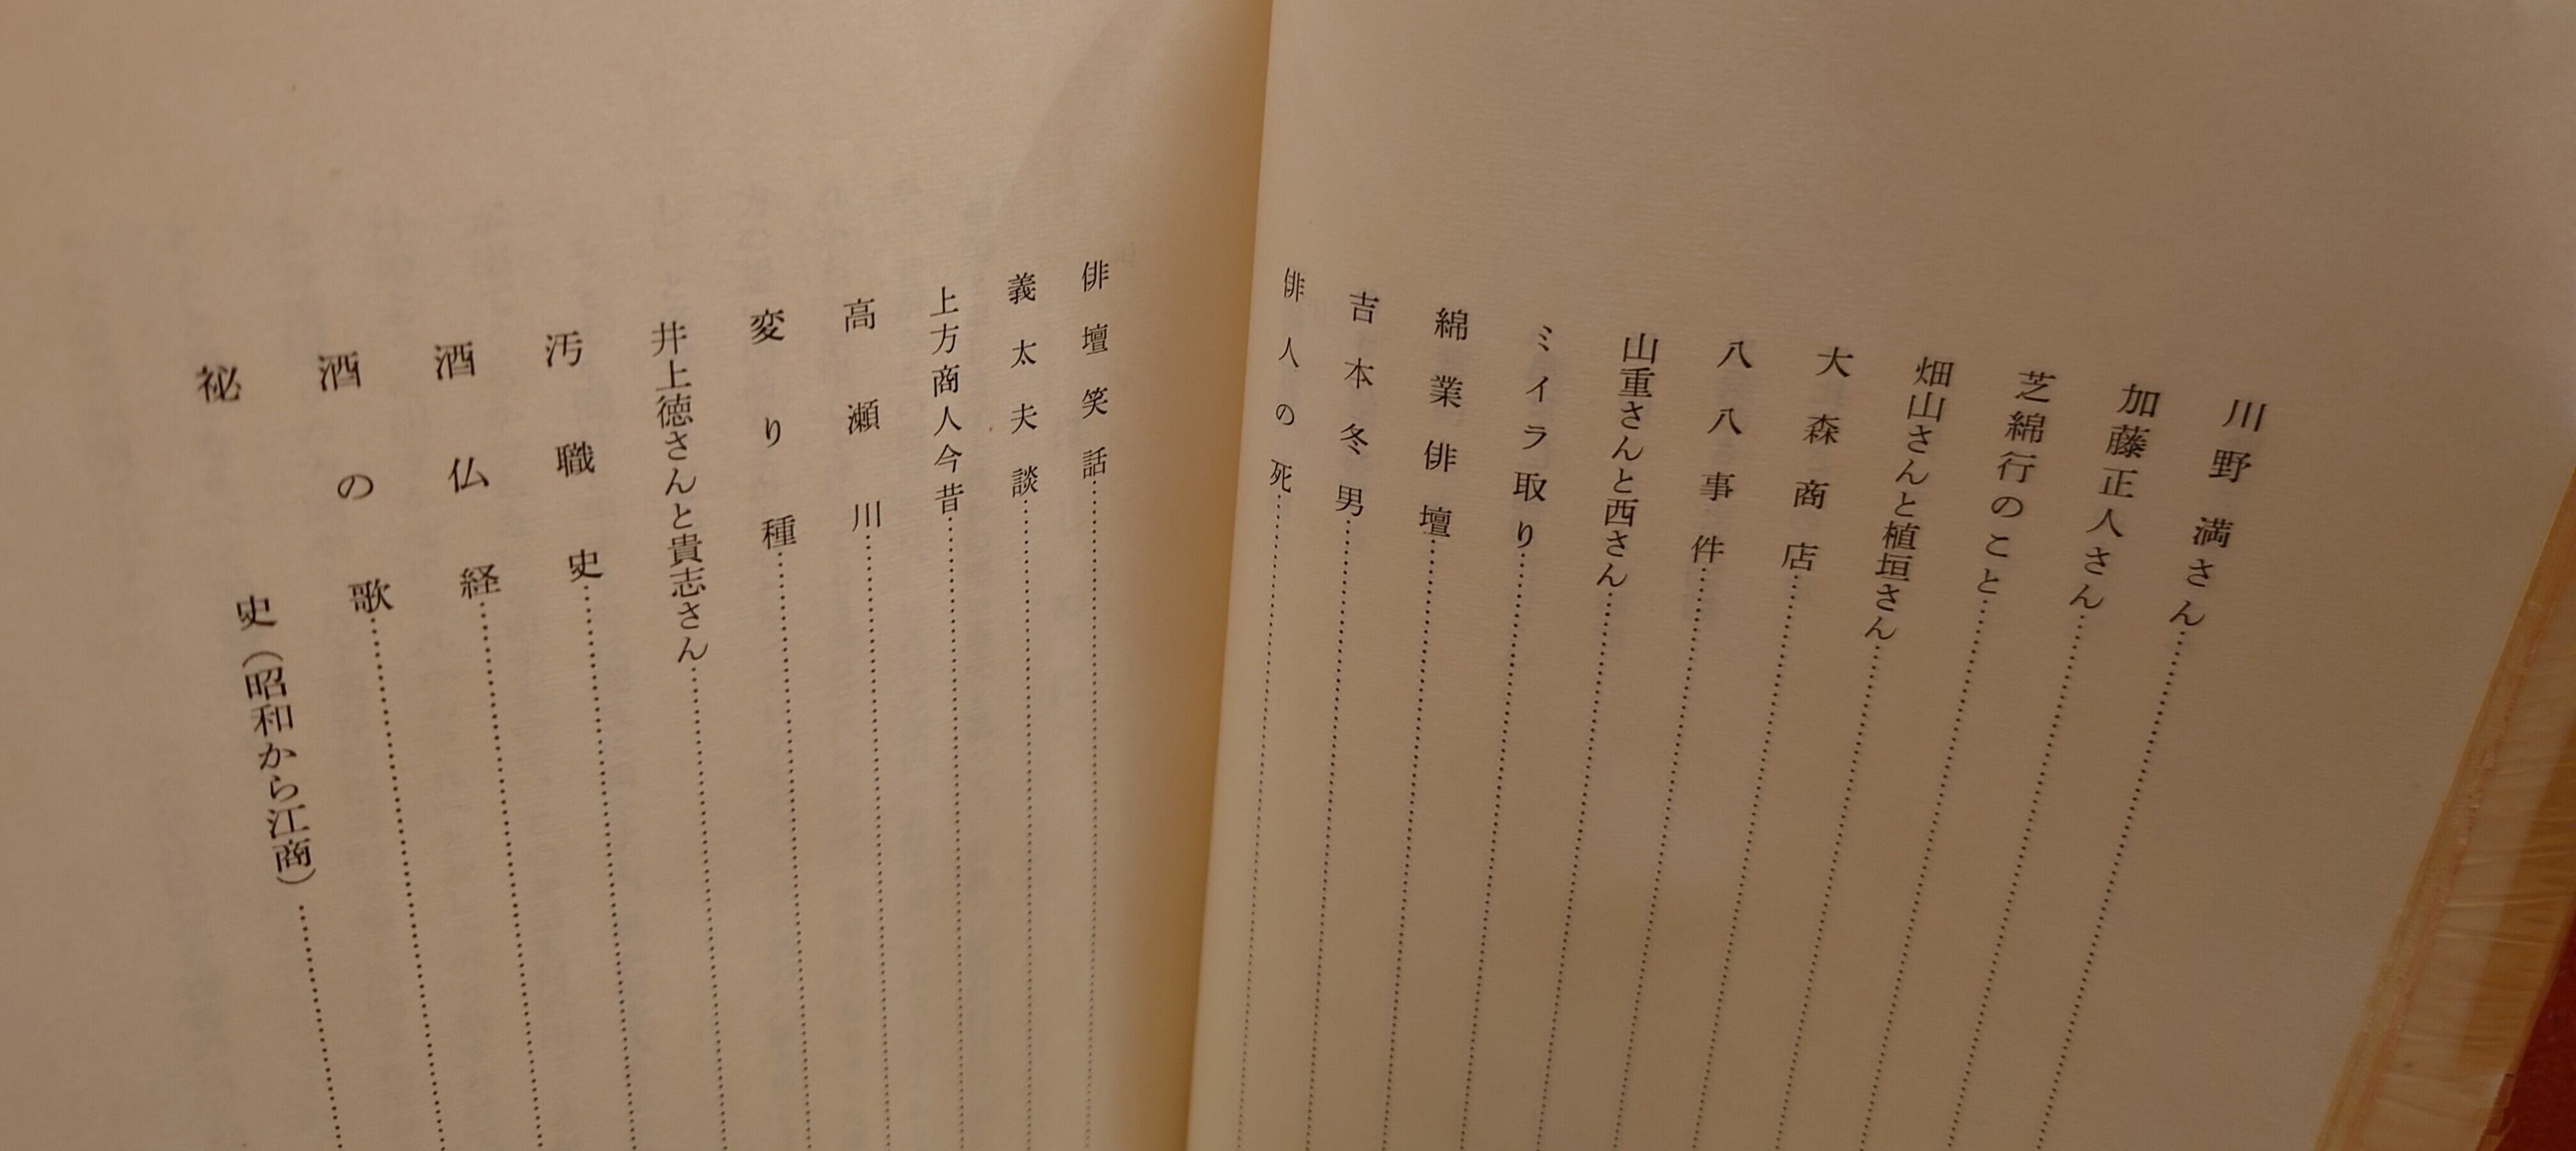 川野満さん
加藤正人さん
芝綿行のこと
畑山さんと植垣さん
大森商店
八八事件
山重さんと西さん
ミイラ取り
綿業俳壇
吉本冬男
俳人の死
俳壇笑話
義太夫談
上方商人今昔
高瀬川
変り種
井上徳さんと貴志さん
汚職史
酒仏経
酒の歌
祕史(昭和から江商)